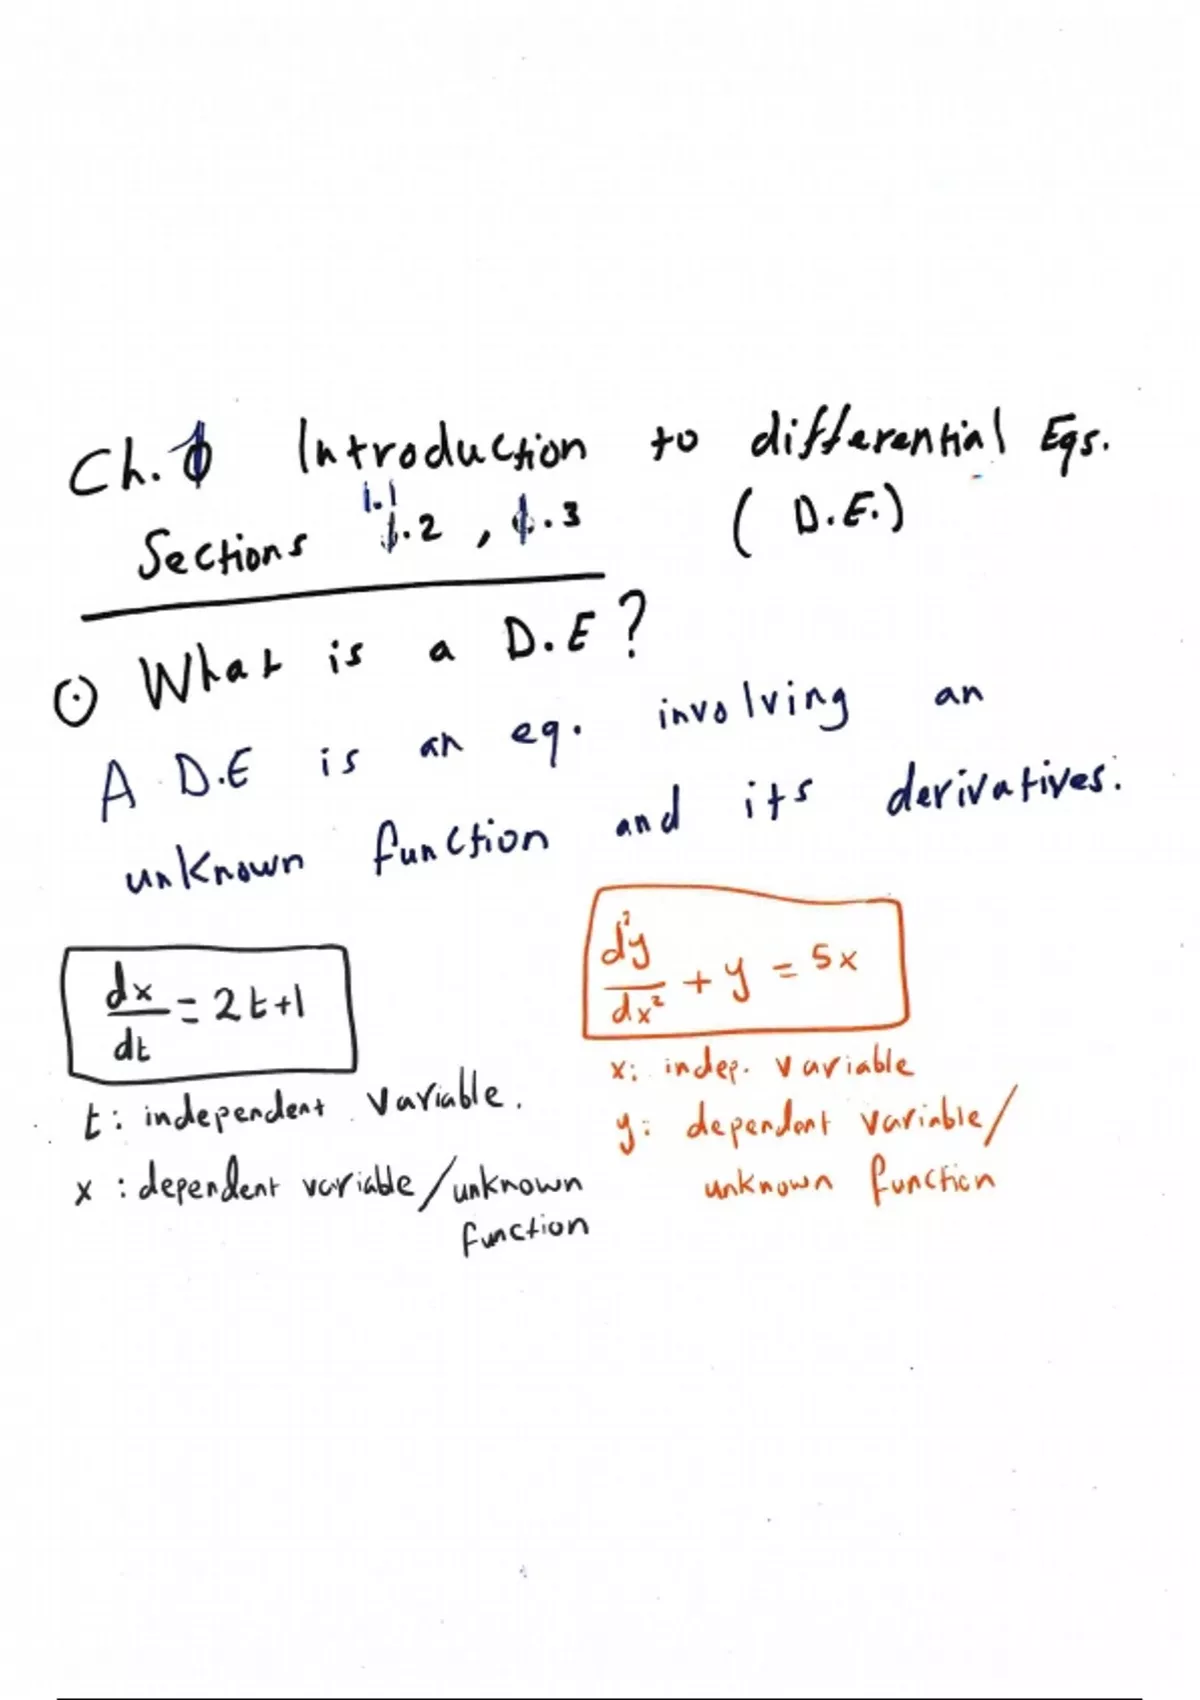 Ch. 1 Introduction to differential Eqs.
(D.E.)
Sections 1.1 1.2, 1.3
⊙ What is a D.E?
A D.E is an eq. involving an
unknown function and its derivatives.
dx/dt = 2t+1
t: independent variable.
x: dependent variable/unknown
function
d²y/dx² + y = 5x
x: indep. variable
y: dependent variable/
unknown function